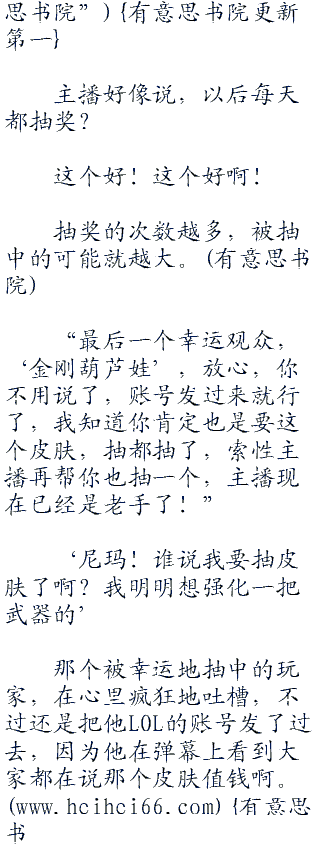 思书院”) {有意思书院更新
第一}
主播好像说，以后每天
都抽奖？
这个好！这个好啊！
抽奖的次数越多，被抽
中的可能就越大。(有意思书
院)
“最后一个幸运观众，
‘金刚葫芦娃’，放心，你
不用说了，账号发过来就行
了，我知道你肯定也是要这
个皮肤，抽都抽了，索性主
播再帮你也抽一个，主播现
在已经是老手了！”
‘尼玛！谁说我要抽皮
肤了啊？我明明想强化一把
武器的’
那个被幸运地抽中的玩
家，在心里疯狂地吐槽，不
过还是把他LOL的账号发了过
去，因为他在弹幕上看到大
家都在说那个皮肤值钱啊。
(www.hcihci66.com) {有意思
书